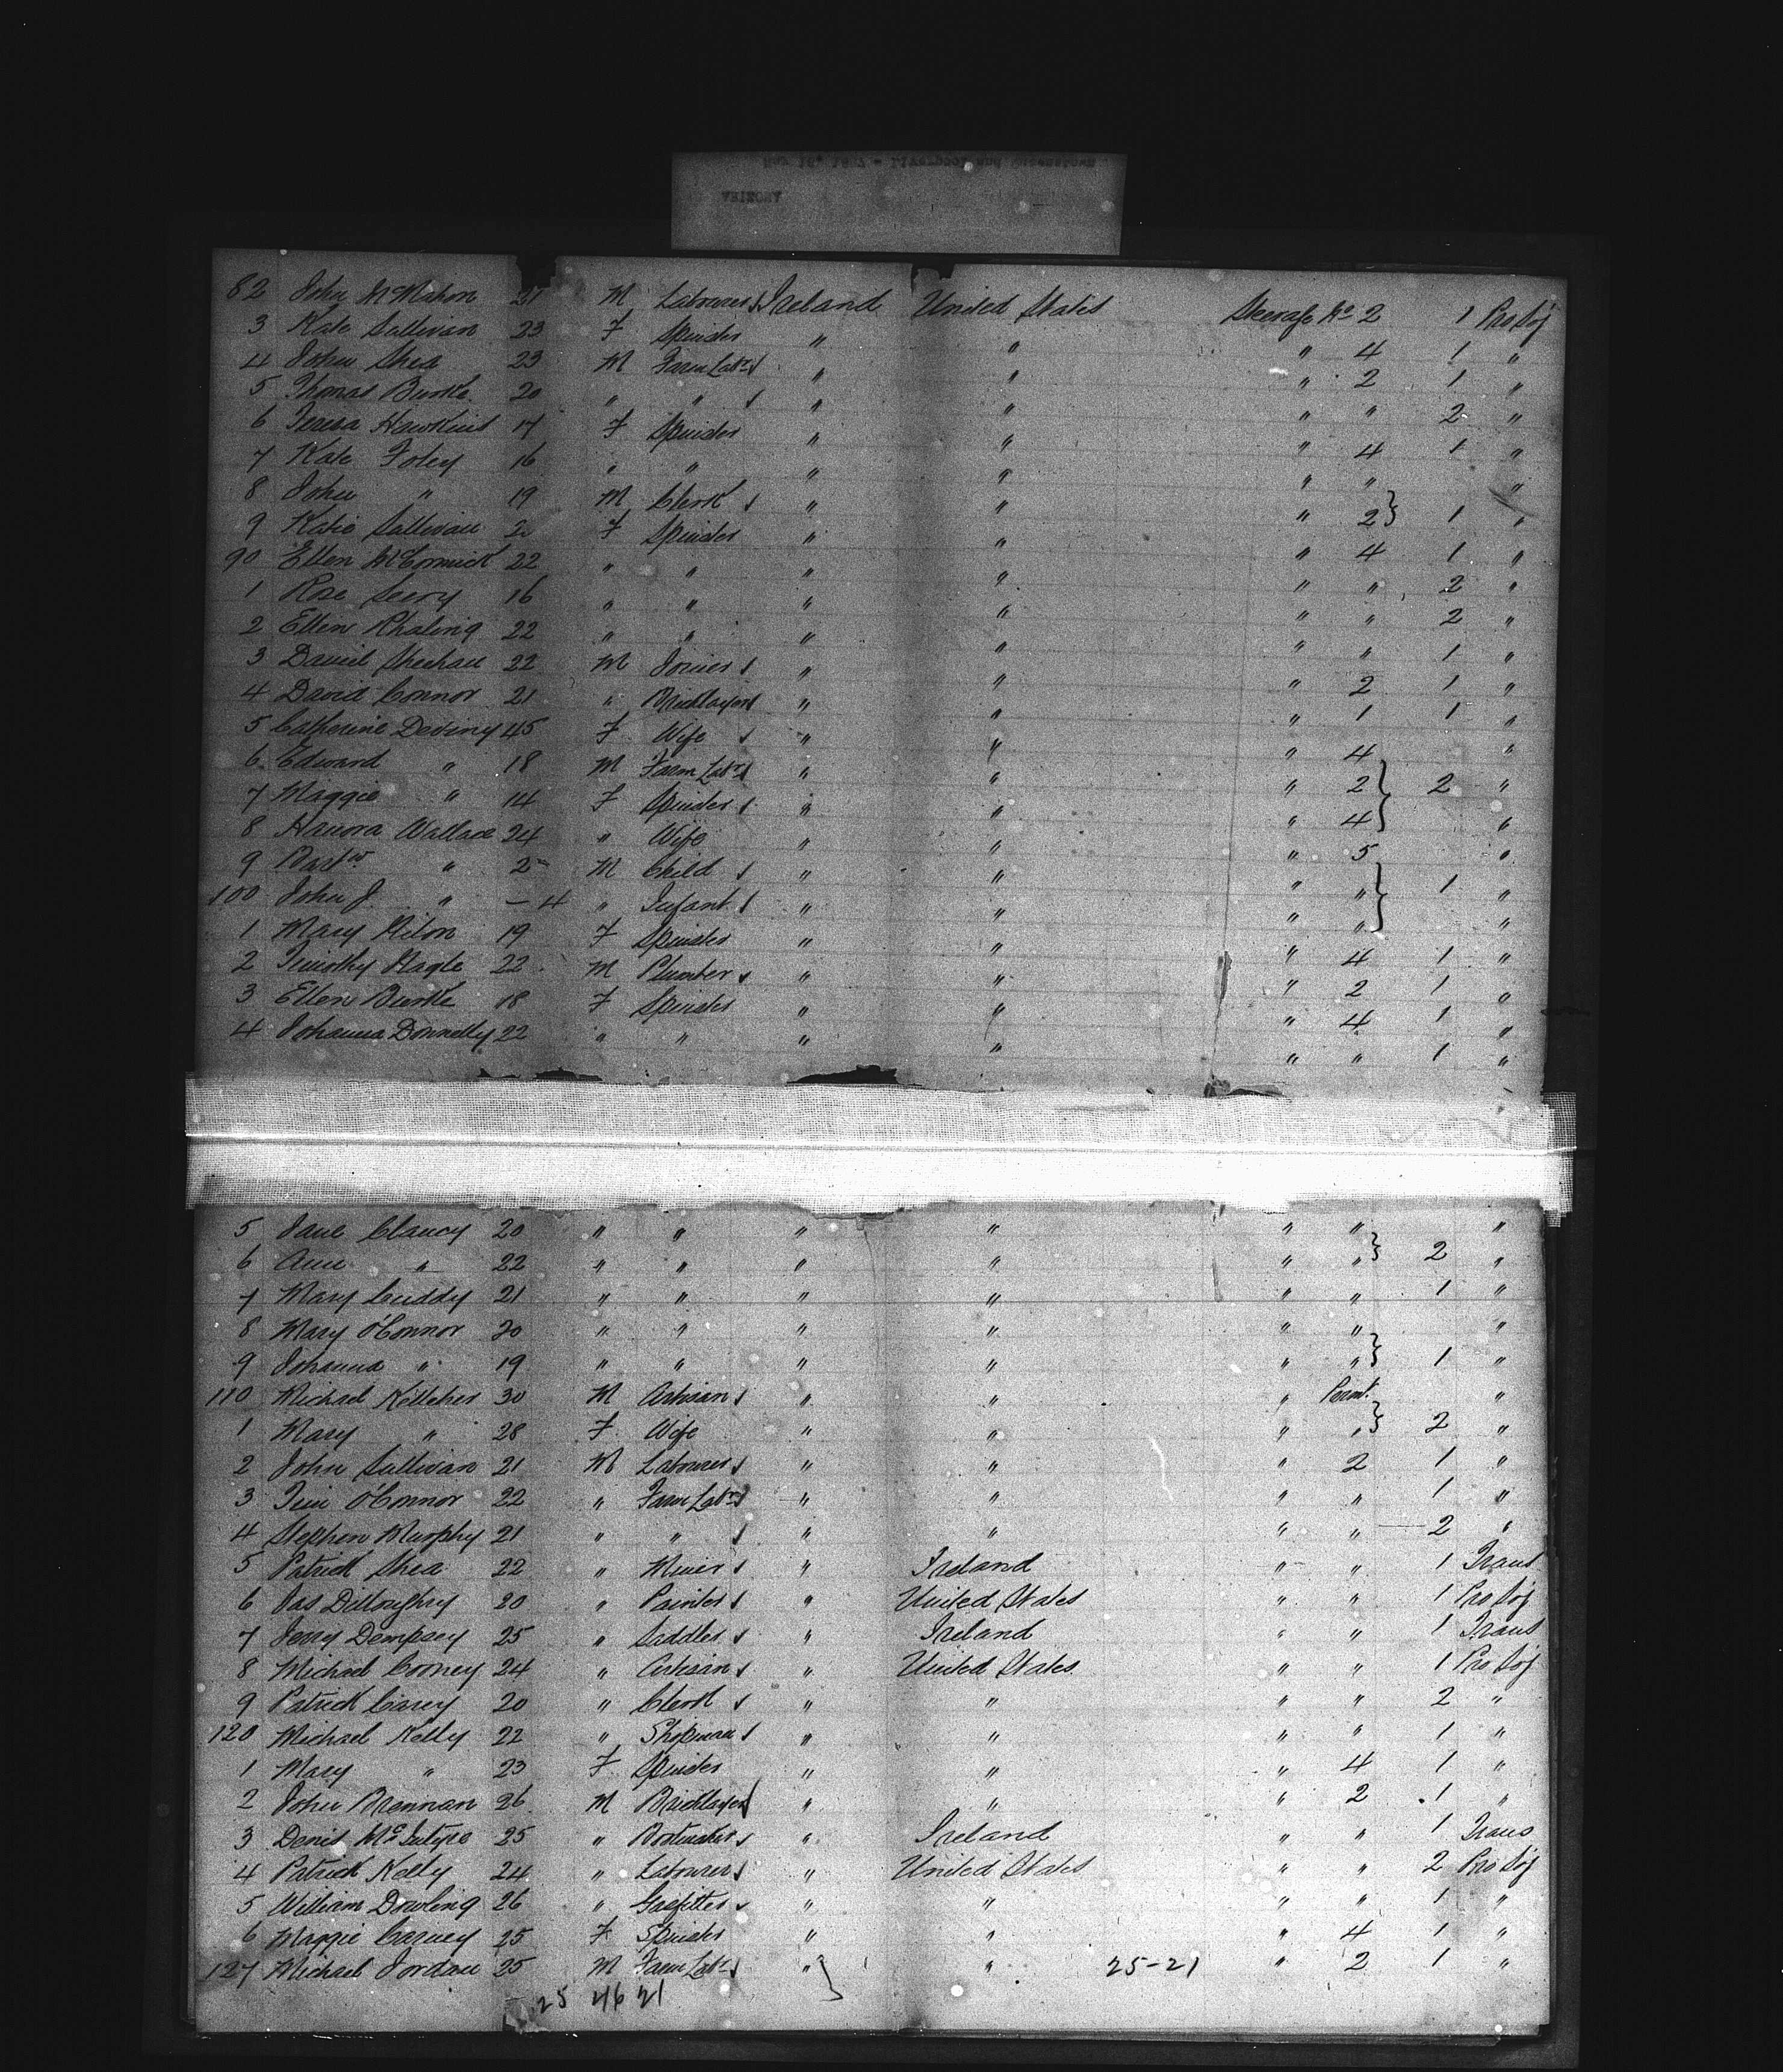 82 John McMahon 21 M Labourer Ireland United States Steerage No 2 1 Pro Soj
3 Kate Sullivan 23 F Spinster " " " 4 1 "
4 John Shea 23 M Farm Labr " " " 2 1 "
5 Thomas Burke 20 " " " " " " 2 "
6 Teresa Hawkins 17 F Spinster " " " 4 1 "
7 Kate Foley 16 " " " " " " "
8 John " 19 M Clerk " " " 2 1 "
9 Katie Sullivan F Spinster " " " 4 1 "
90 Ellen McCormick 22 " " " " " " 2 "
1 Rose Seery 16 " " " " " " 2 "
2 Ellen 22 " " " " " " 1 "
3 Daniel Sheehan 22 M Joiner " " " 2 1 "
4 David Connor 21 " Bricklayer " " " 1 1 "
5 Catherine Deviny 45 F Wife " " " 4 "
6 Edward " 18 M Farm Labr " " " 2 2 "
7 Maggie " 14 F Spinster " " " 4 "
8 Hanora Wallace 24 " Wife " " " 5 "
9 Bartw " 2 M Child " " " " 1 "
100 John J. " - 4 " Infant " " " " "
1 Mary 19 F Spinster " " " 4 1 "
2 Timothy 22 M Plumber " " " 2 1 "
3 Ellen Burke 18 F Spinster " " " 4 1 "
4 Johanna Donnelly 22 " " " " " " 1 "
5 Jane Clancy 20 " " " " " " "
6 Ann " 22 " " " " " " 2 "
7 Mary Cuddy 21 " " " " " " 1 "
8 Mary O'Connor 20 " " " " " " "
9 Johanna " 19 " " " " " " 1 "
110 Michael Kelleher 30 M Artisan " " " "
1 Mary " 28 F Wife " " " " 2 "
2 John Sullivan 21 M Labourer " " " 2 1 "
3 Tim O'Connor 22 " Farm Labr " " " " 1 "
4 Stephen Murphy 21 " " " " " " 2 "
5 Patrick Shea 22 " Miner " Ireland " " 1 Trans
6 Jas Dilloughry 20 " Painter " United States " " 1 Pro Soj
7 Jerry Dempsey 25 " Saddler " Ireland " " 1 Trans
8 Michael Cooney 24 " Artisan " United States " " 1 Pro Soj
9 Patrick Carey 20 " Clerk " " " " 2 "
120 Michael Kelly 22 " Shopman " " " " 1 "
1 Mary " 23 F Spinster " " " 4 1 "
2 John Brennan 26 M Bricklayer " " " 2 1 "
3 Denis McIntyre 25 " Bootmaker " Ireland " " 1 Trans
4 Patrick Kelly 24 " Labourer " United States " " 2 Pro Soj
5 William Dowling 26 " Gasfitter " " " " 1 "
6 Maggie Carney 25 F Spinster " " " 4 1 "
127 Michael Jordan 25 M Farm Labr " " 25-21 " 2 1 "
25 46 21